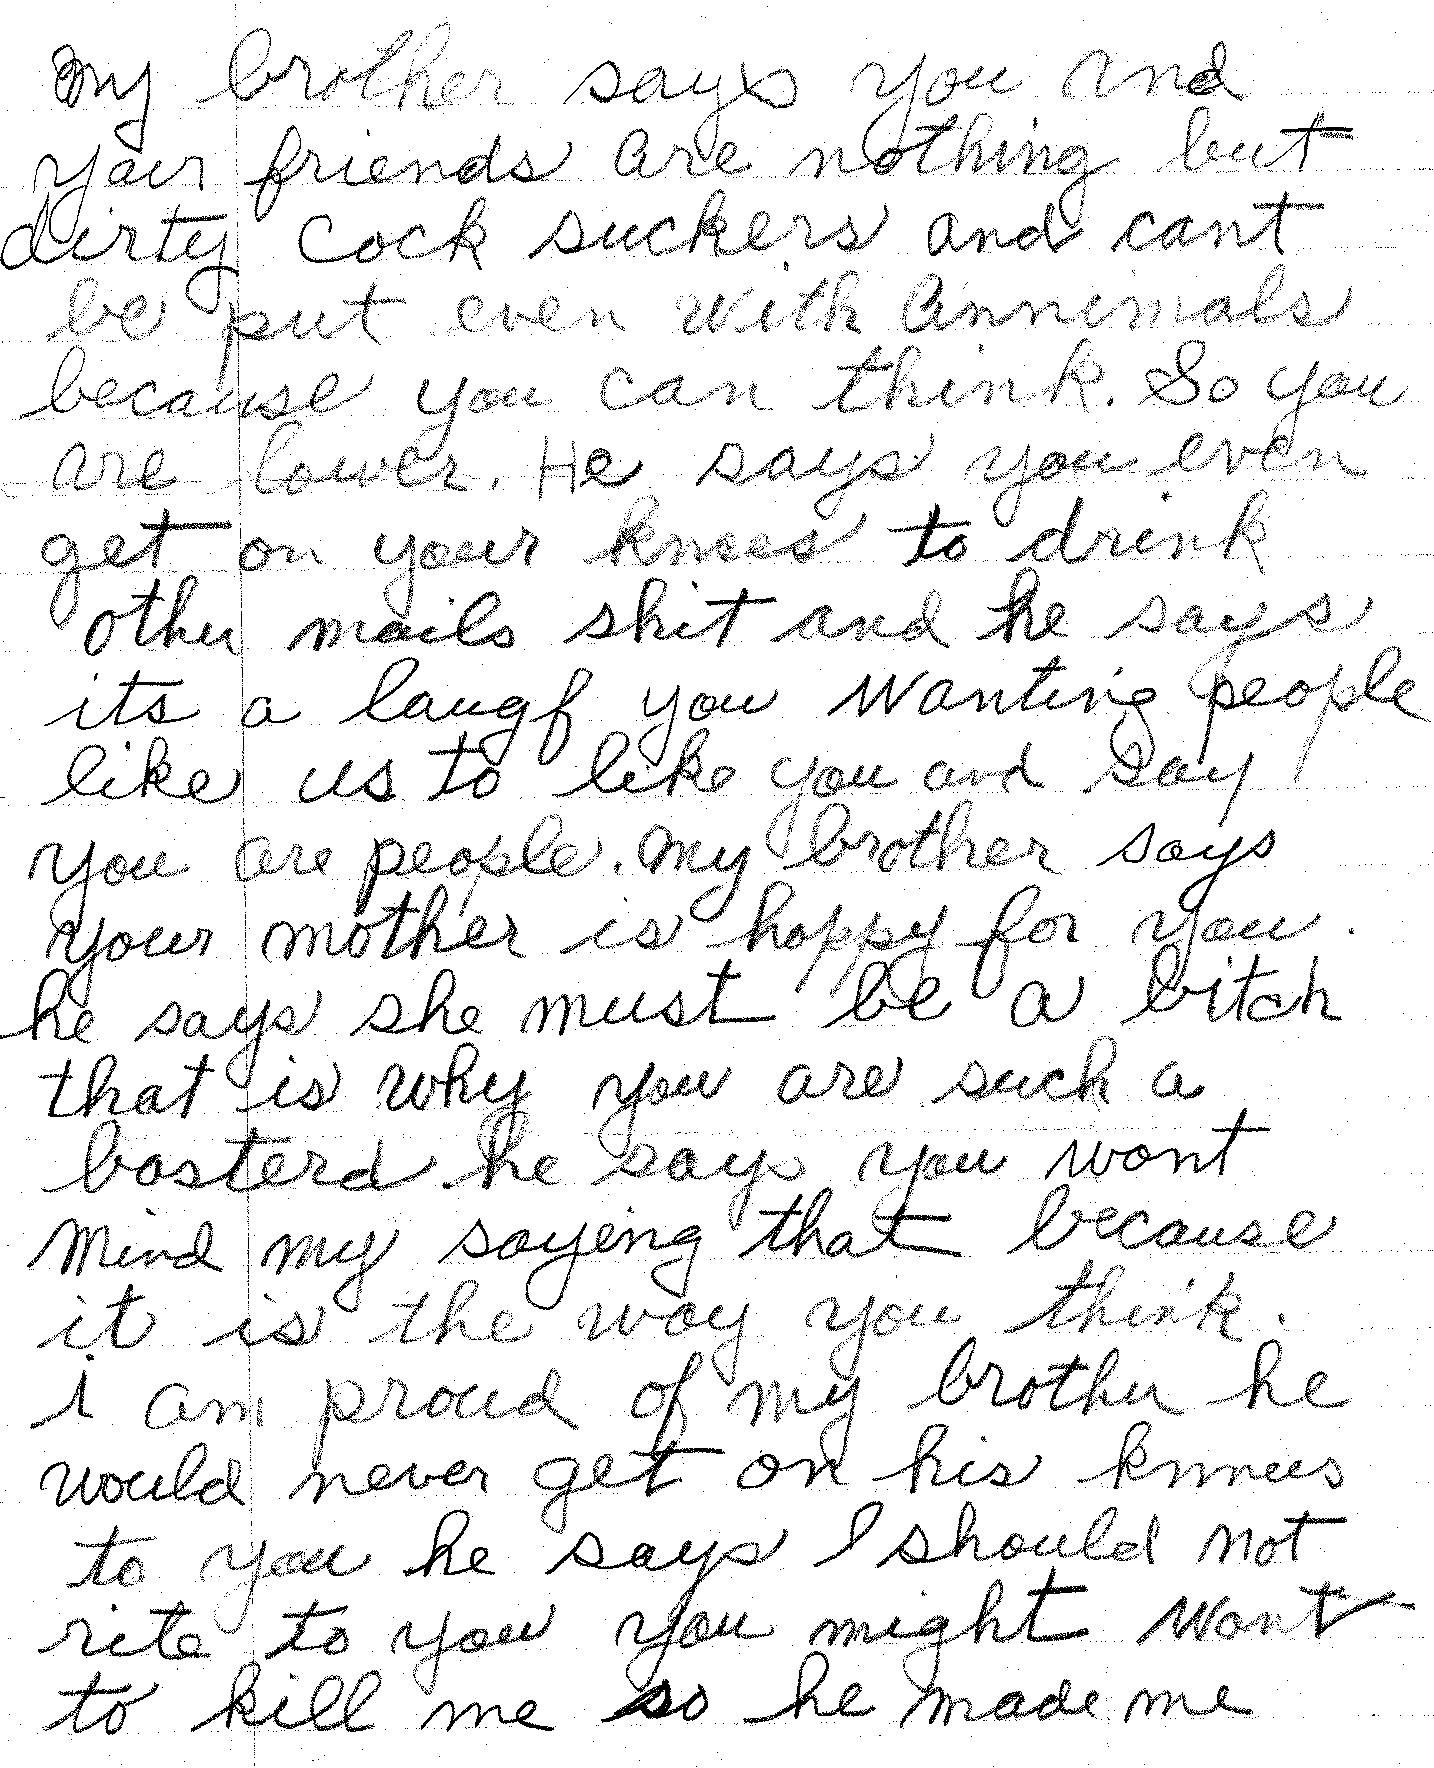 My brother says you and
your friends are nothing but
dirty cock suckers and cant
be put even with Annimals
because you can think. So you
are lower. He says you even
get on your knees to drink
other mails shit and he says
its a laugf you wanting people
like us to like you and say
you are people. My brother says
your mother is happy for you.
he says she must be a bitch
that is why you are such a
basterd he says you wont
mind my saying that because
it is the way you think.
i am proud of my brother he
would never get on his knnees
to you he says I should not
rite to you you might want
to kill me so he made me